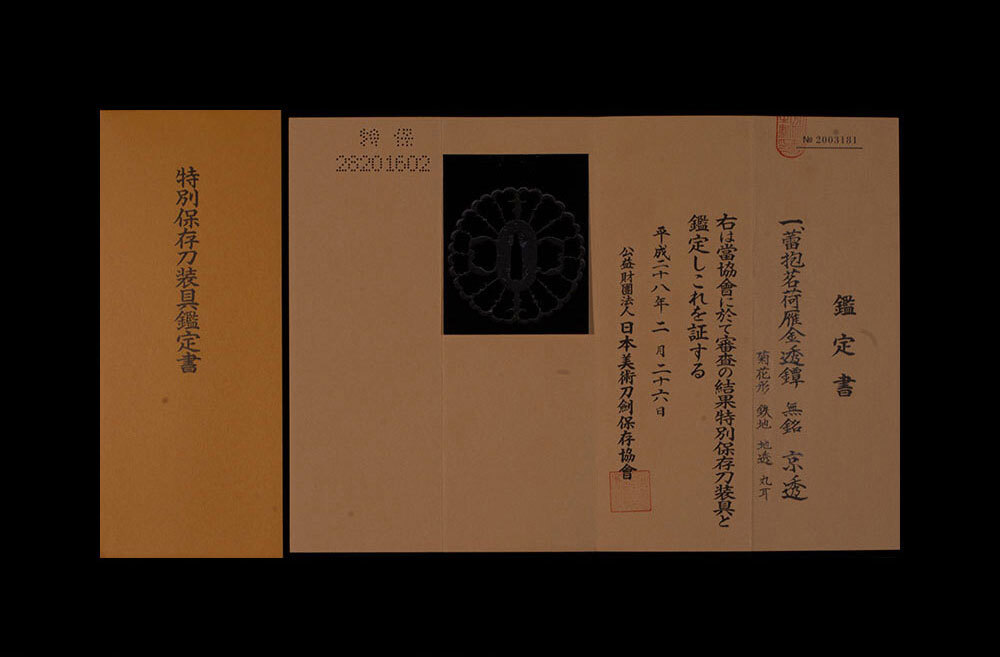 特別保存刀装具鑑定書
№ 2003181
鑑定書
一、蕾抱茗荷雁金透鐔 無銘 京透
菊花形 鉄地 地透 丸耳
右は當協會に於て審査の結果特別保存刀装具と
鑑定しこれを証する
平成二十八年 二月二十六日
公益財團法人 日本美術刀劍保存協會
特保
28201602